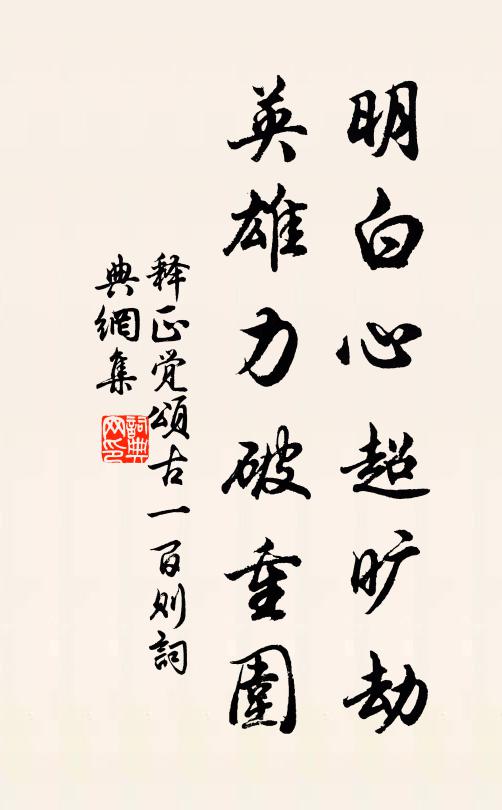 明白心超旷劫
英雄力破重圍
释正觉頌古一百则詞
典網集
詞典
网印